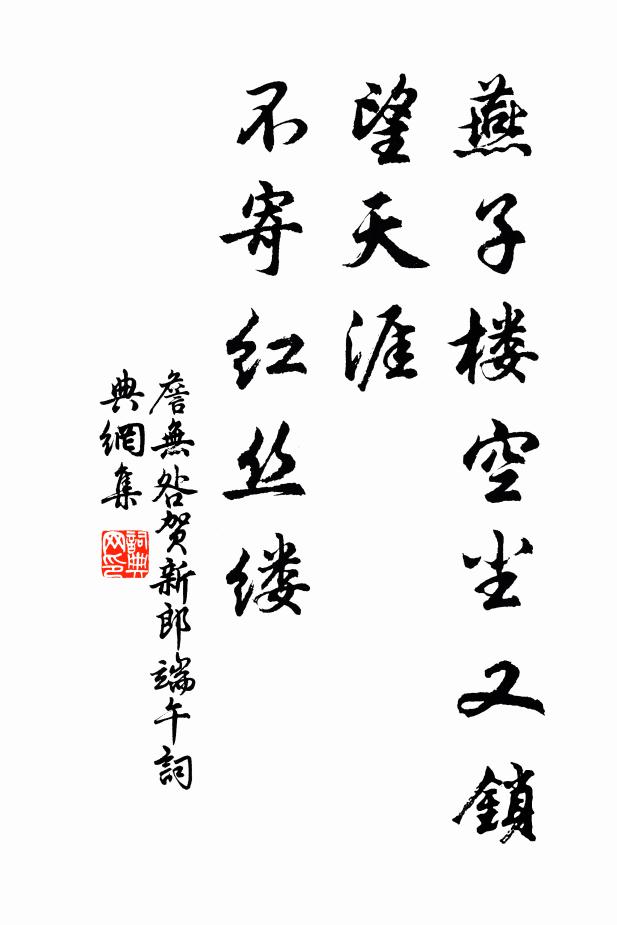 燕子楼空尘又鎖
望天涯
不寄红丝缕
詹無咎贺新郎端午詞
典網集
詞典
网印